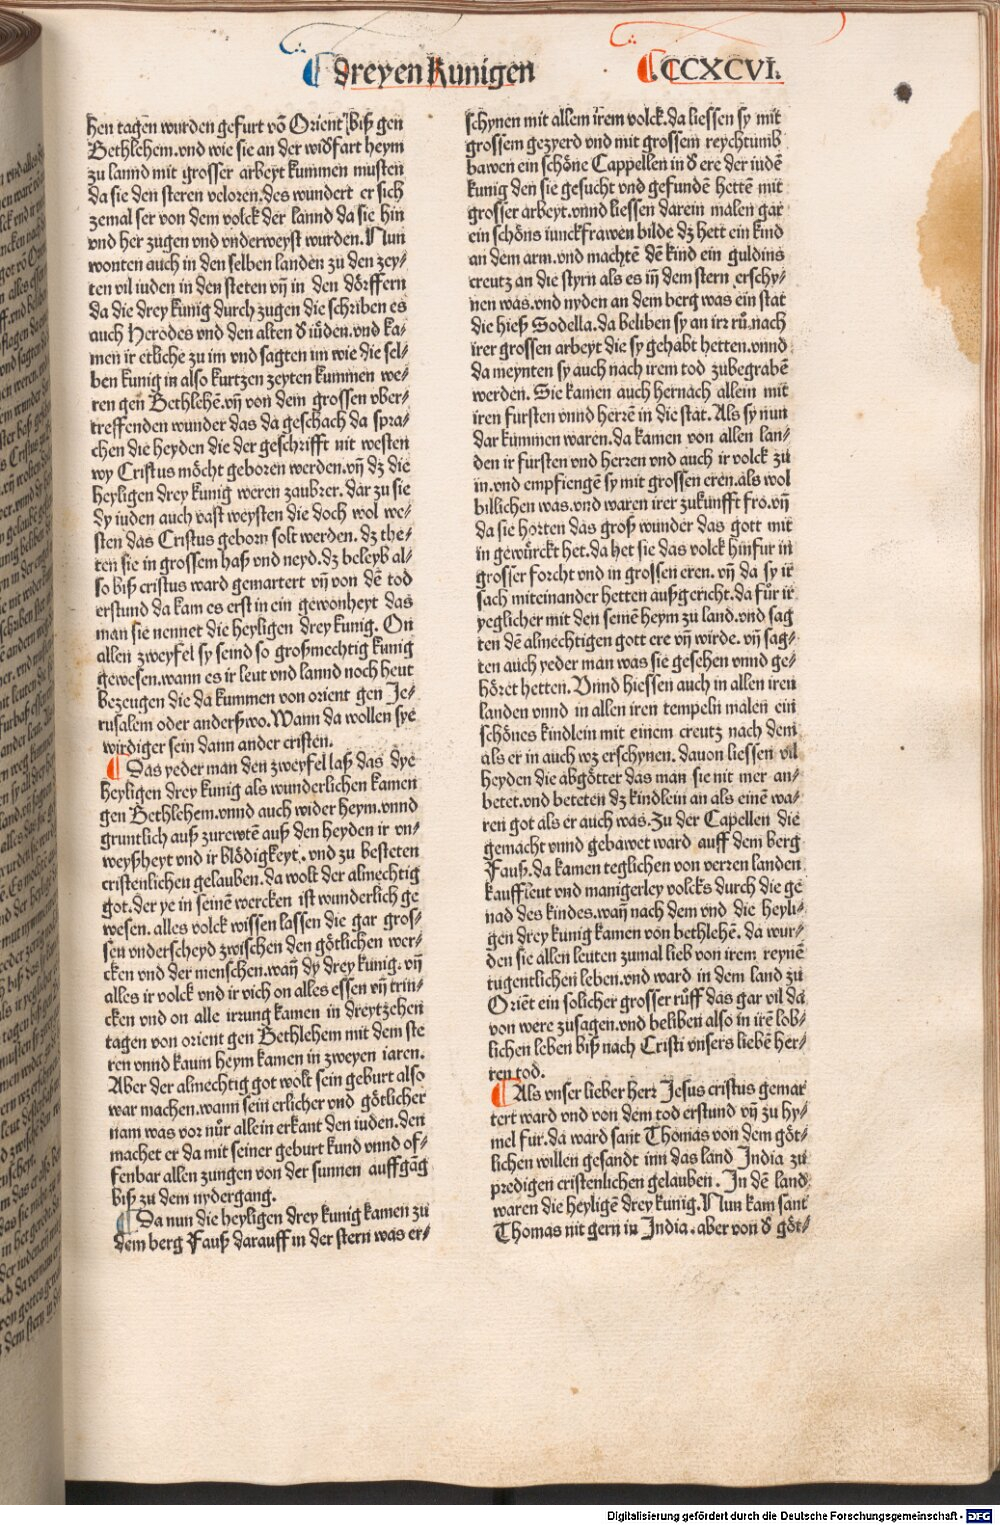 dreyen Kunigen
.CCXCVI.
hen tagen wurden gefurt võ Orient biß gen
Bethlehem.vnd wie sie an der widfart heym
zu lannd mit grosser arbeyt kummen musten
da sie den steren veloren.des wundert er sich
zemal ser von dem volck der lannd da sie hin
vnd her zugen vnd vnderweyst wurden. Nun
wonten auch in den selben landen zu den zey⸗
ten vil iuden in den steten vñ in den dörffern
da die drey kunig durch zugen die schriben es
auch Herodes vnd den alten d iuden.vnd ka⸗
men ir etliche zu im vnd sagten im wie die sel⸗
ben kunig in also kurtzen zeyten kummen we⸗
ren gen Bethlehẽ.vñ von dem grossen vber⸗
treffenden wunder das da geschach da spra⸗
chen die heyden die der geschrifft nit westen
wy Cristus möcht geboren werden.vñ dz die
heyligen drey kunig weren zaubrer. dar zu sie
dy iuden auch vast weysten die doch wol we⸗
sten das Cristus geborn solt werden. dz the⸗
ten sie in grossem haß vnd neyd.dz beleyb al⸗
so biß cristus ward gemartert vñ von dẽ tod
erstund da kam es erst in ein gewonheyt das
man sie nennet die heyligen drey kunig. On
allen zweyfel sy seind so großmechtig kunig
gewesen.wann es ir leut vnd lannd noch heut
bezeugen die da kummen von orient gen Je⸗
rusalem oder anderßwo. Wann da wollen sye
wirdiger sein dann ander cristen.
Das yeder man den zweyfel laß das dye
heyligen drey kunig als wunderlichen kamen
gen Bethlehem.vnnd auch wider heym.vnnd
gruntlich auß zurewtẽ auß den heyden ir vn⸗
weyßheyt vnd ir blödigkeyt. vnd zu besteten
cristenlichen gelauben.da wolt der almechtig
got.der ye in seinẽ wercken ist wunderlich ge
wesen. alles volck wissen lassen die gar gros⸗
sen vnderscheyd zwischen den götlichen wer⸗
cken vnd der menschen.wañ dy drey kunig. vñ
alles ir volck vnd ir vich on alles essen vñ trin⸗
cken vnd on alle irrung kamen in dreytzehen
tagen von orient gen Bethlehem mit dem ste
ren vnnd kaum heym kamen in zweyen iaren.
Aber der almechtig got wolt sein geburt also
war machen.wann sein erlicher vnd götlicher
nam was vor nůr allein erkant den iuden.den
machet er da mit seiner geburt kund vnnd of⸗
fenbar allen zungen von der sunnen auffgãg
biß zu dem nydergang.
Da nun die heyligen drey kunig kamen zu
dem berg Fauß darauff in der stern was er⸗
schynen mit allem irem volck.da liessen sy mit
grossem gezyerd vnd mit grossem reychtumb
bawen ein schöne Cappellen in d ere der iudẽ
kunig den sie gesucht vnd gefundẽ hetten mit
grosser arbeyt.vnnd liessen darein malen gar
ein schöns iunckfrawen bilde dz hett ein kind
an dem arm.vnd machtẽ dẽ kind ein guldins
creutz an die styrn als es in dem stern erschy⸗
nen was.vnd nyden an dem berg was ein stat
die hieß Sodella.da beliben sy an irr rů.nach
irer grossen arbeyt die sy gehabt hetten.vnnd
da meynten sy auch nach irem tod zubegrabẽ
werden. Sie kamen auch hernach allein mit
iren fursten vnnd herrẽ in die stat. Als sy nun
dar kummen waren.da kamen von allen lan⸗
den ir fursten vnd herren vnd auch ir volck zu
in.vnd empfiengẽ sy mit grossen eren.als wol
billichen was.vnd waren irer zukunfft fro.vñ
da sie horten das groß wunder das gott mit
in gewürckt het.da het sie das volck hinfur in
grosser forcht vnd in grossen eren. vñ da sy ir
sach miteinander hetten außgericht.da fůr ir
yeglicher mit den seinẽ heym zu land.vnd sag
ten dẽ almechtigen gott ere vñ wirde. vñ sag⸗
ten auch yeder man was sie gesehen vnnd ge⸗
höret hetten. Vnnd hiessen auch in allen iren
landen vnnd in allen iren tempeln malen ein
schönes kindlein mit einem creutz nach dem
als er in auch wz erschynen. dauon liessen vil
heyden die abgötter das man sie nit mer an⸗
betet.vnd beteten dz kindlein an als einẽ wa⸗
ren got als er auch was. Zu der Capellen die
gemacht vnnd gebawet ward auff dem berg
Fauß.da kamen teglichen von verren landen
kauffleut vnd manigerley volcks durch die ge
nad des kindes.wañ nach dem vnd die heyli⸗
gen drey kunig kamen von bethlehẽ. da wur⸗
den sie allen leuten zumal lieb von irem reynẽ
tugentlichen leben.vnd ward in dem land zu
Oriẽt ein solicher grosser růff das gar vil da
von were zusagen.vnd beliben also in irẽ lob⸗
lichen leben biß nach Cristi vnsers liebẽ her⸗
ren tod.
Als vnser lieber herr Jesus cristus gemar
tert ward vnd von dem tod erstund vñ zu hy⸗
mel fur.da ward sant Thomas von dem göt⸗
lichen willen gesandt inn das land India zu
predigen cristenlichen gelauben. In dẽ land
waren die heyligẽ drey kunig. Nun kam sant
Thomas nit gern in India.aber von d göt⸗
Digitalisierung gefördert durch die Deutsche Forschungsgemeinschaft - DFG